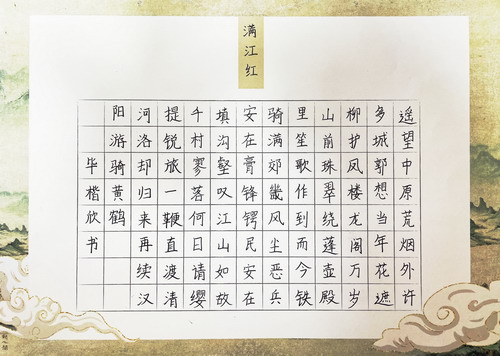 满江红
遥望中原荒烟外许
多城郭想当年花遮
柳护凤楼龙阁万岁
山前珠翠绕蓬壶殿
里笙歌作到而今铁
骑满郊畿风尘恶兵
安在膏锋锷民安在
填沟壑叹江山如故
千村寥落何日请缨
提锐旅一鞭直渡清
河洛却归来再续汉
阳游骑黄鹤
毕楷欣书